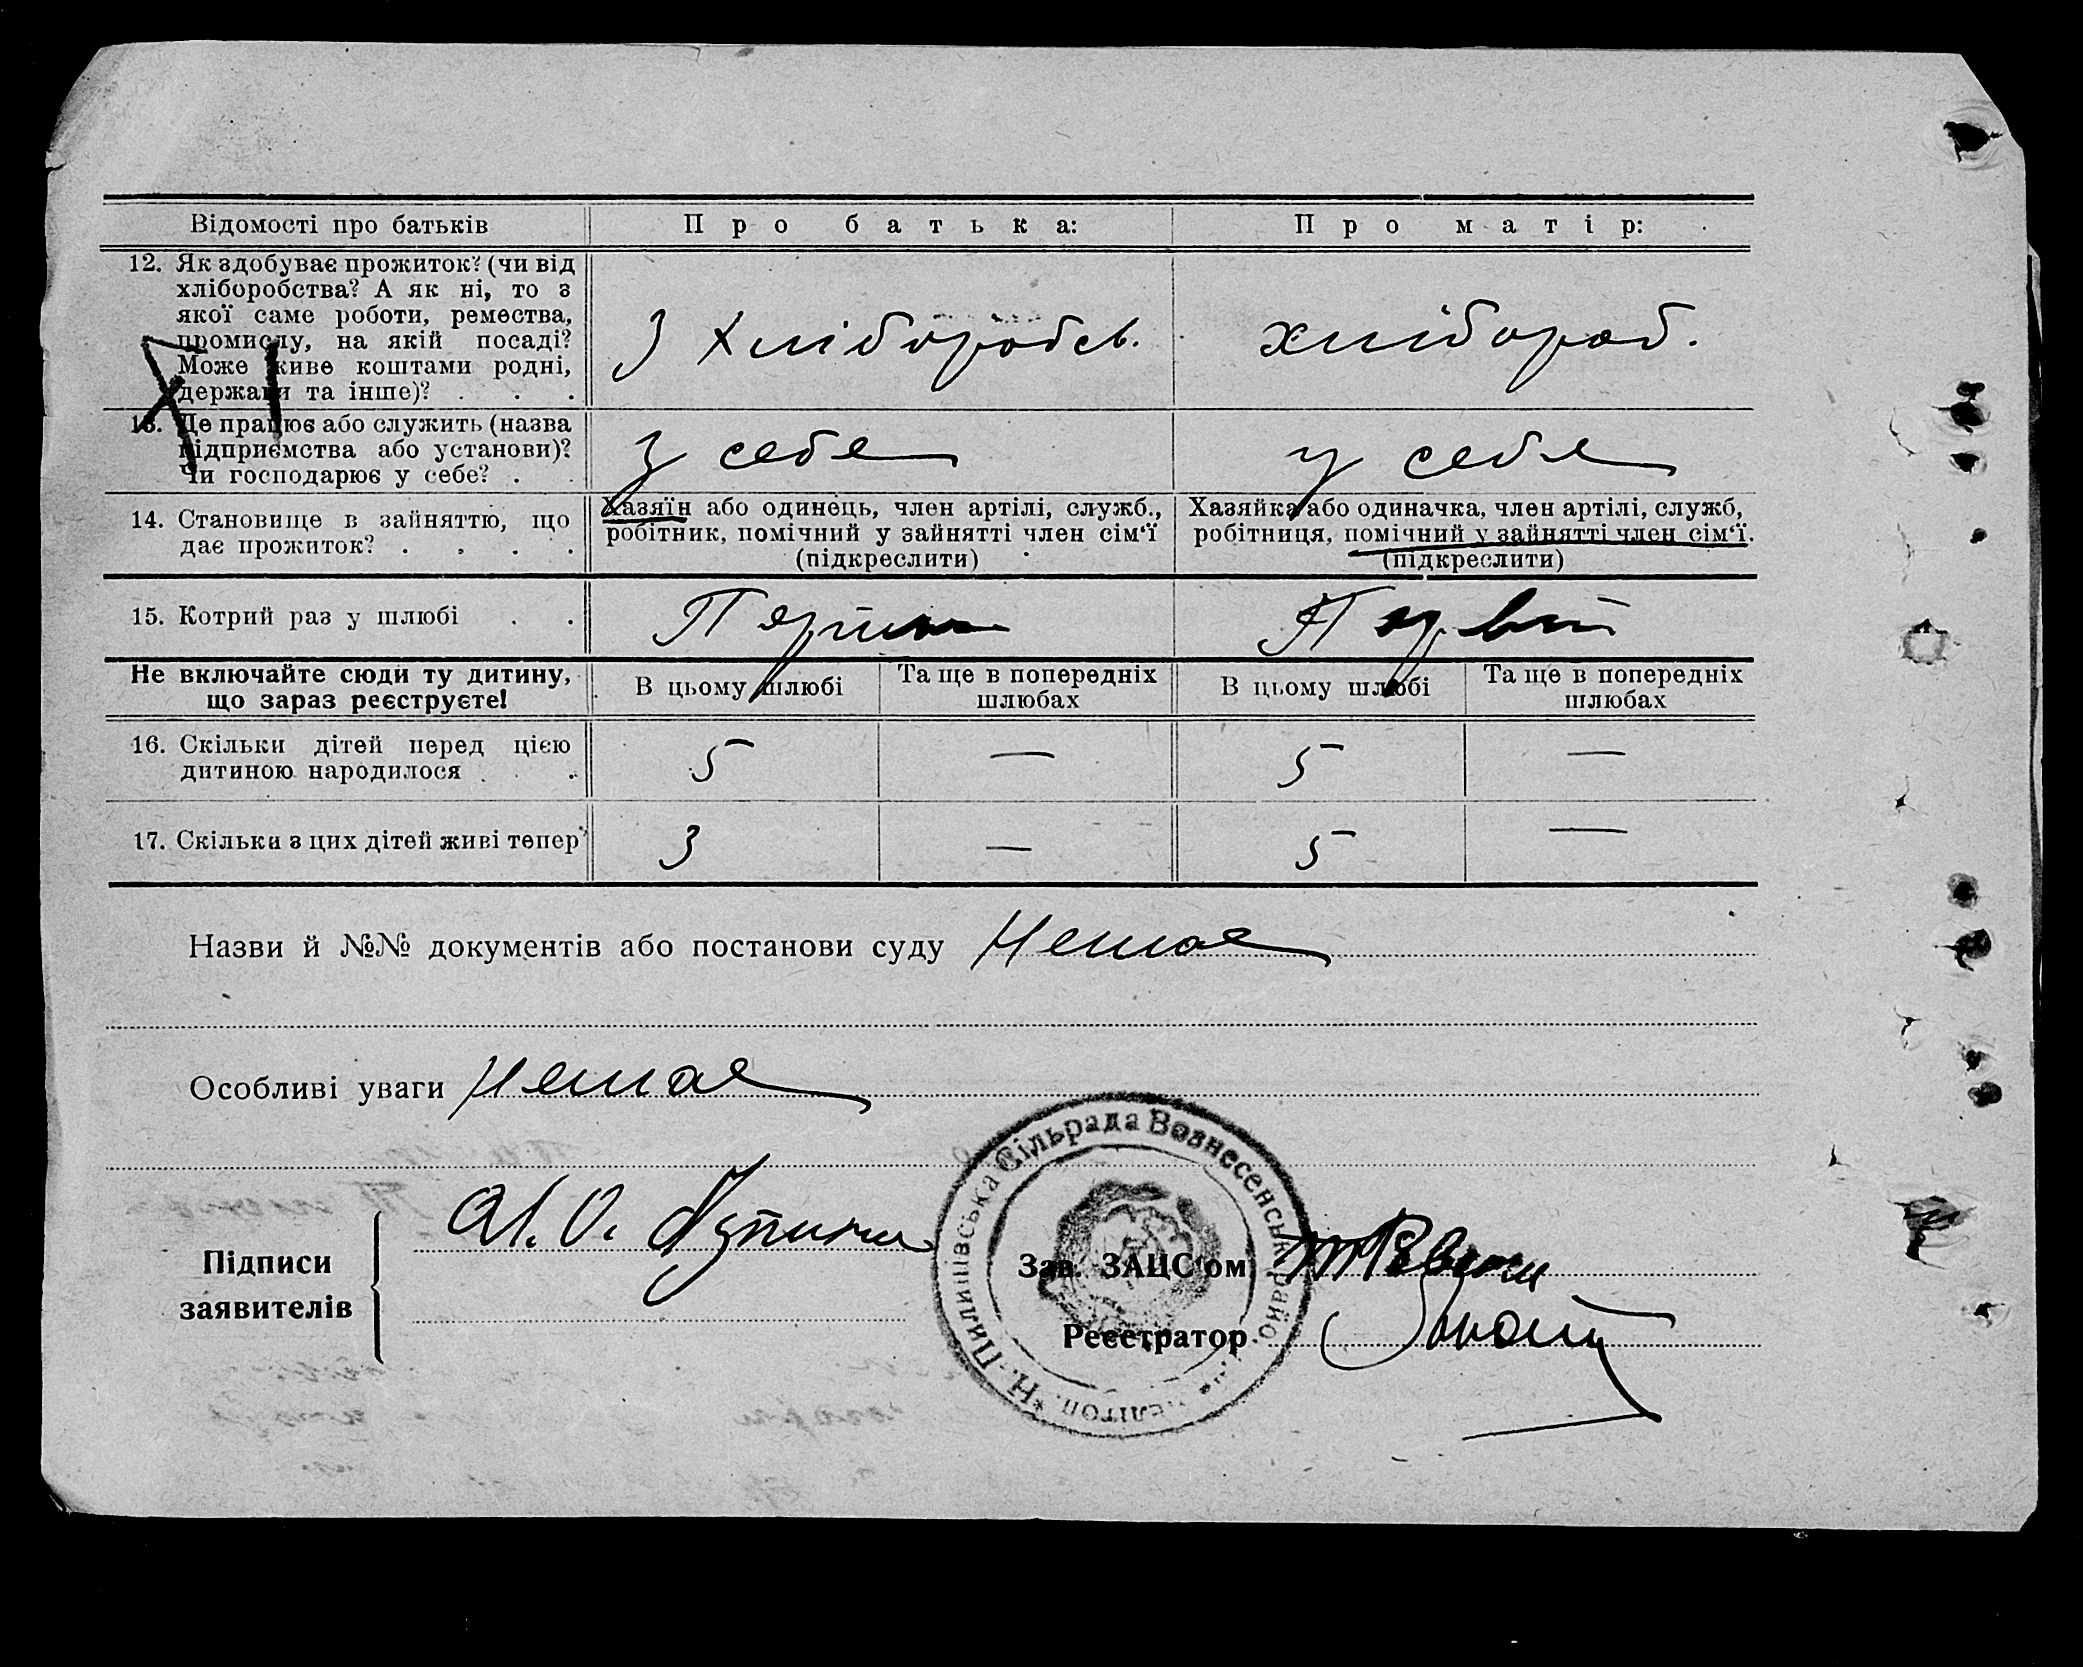 Відомості про батьків
Про батька:
Про матір:
12. Як здобуває прожиток? (чи від
хліборобства? А як ні, то з
якої саме роботи, ремества,
промислу, на якій посаді?
Може живе коштами родні,
держави та інше)? . . .
З хліборобсь.
хлібороб.
13. Де працює або служить (назва
підприємства або установи)?
Чи господарює у себе? .
У себе
у себе
14. Становище в зайняттю, що
дає прожиток? . . . .
Хазяїн або одинець, член артілі, служб.,
робітник, помічний у зайнятті член сім'ї
(підкреслити)
Хазяйка або одиначка, член артілі, служб,
робітниця, помічний у зайнятті член сім'ї.
(підкреслити)
15. Котрий раз у шлюбі . .
Не включайте сюди ту дитину,
що зараз реєструєте!
В цьому шлюбі
Та ще в попередніх
шлюбах
В цьому шлюбі
Та ще в попередніх
шлюбах
16. Скільки дітей перед цією
дитиною народилося . .
5 — 5 —
17. Скільки з цих дітей живі тепер
3 — 5 —
Назви й №№ документів або постанови суду Немае
Особливі уваги Немае
Підписи
заявителів
Сільрада Вознесенськ
Зав. ЗАЦС'ом
Реєстратор